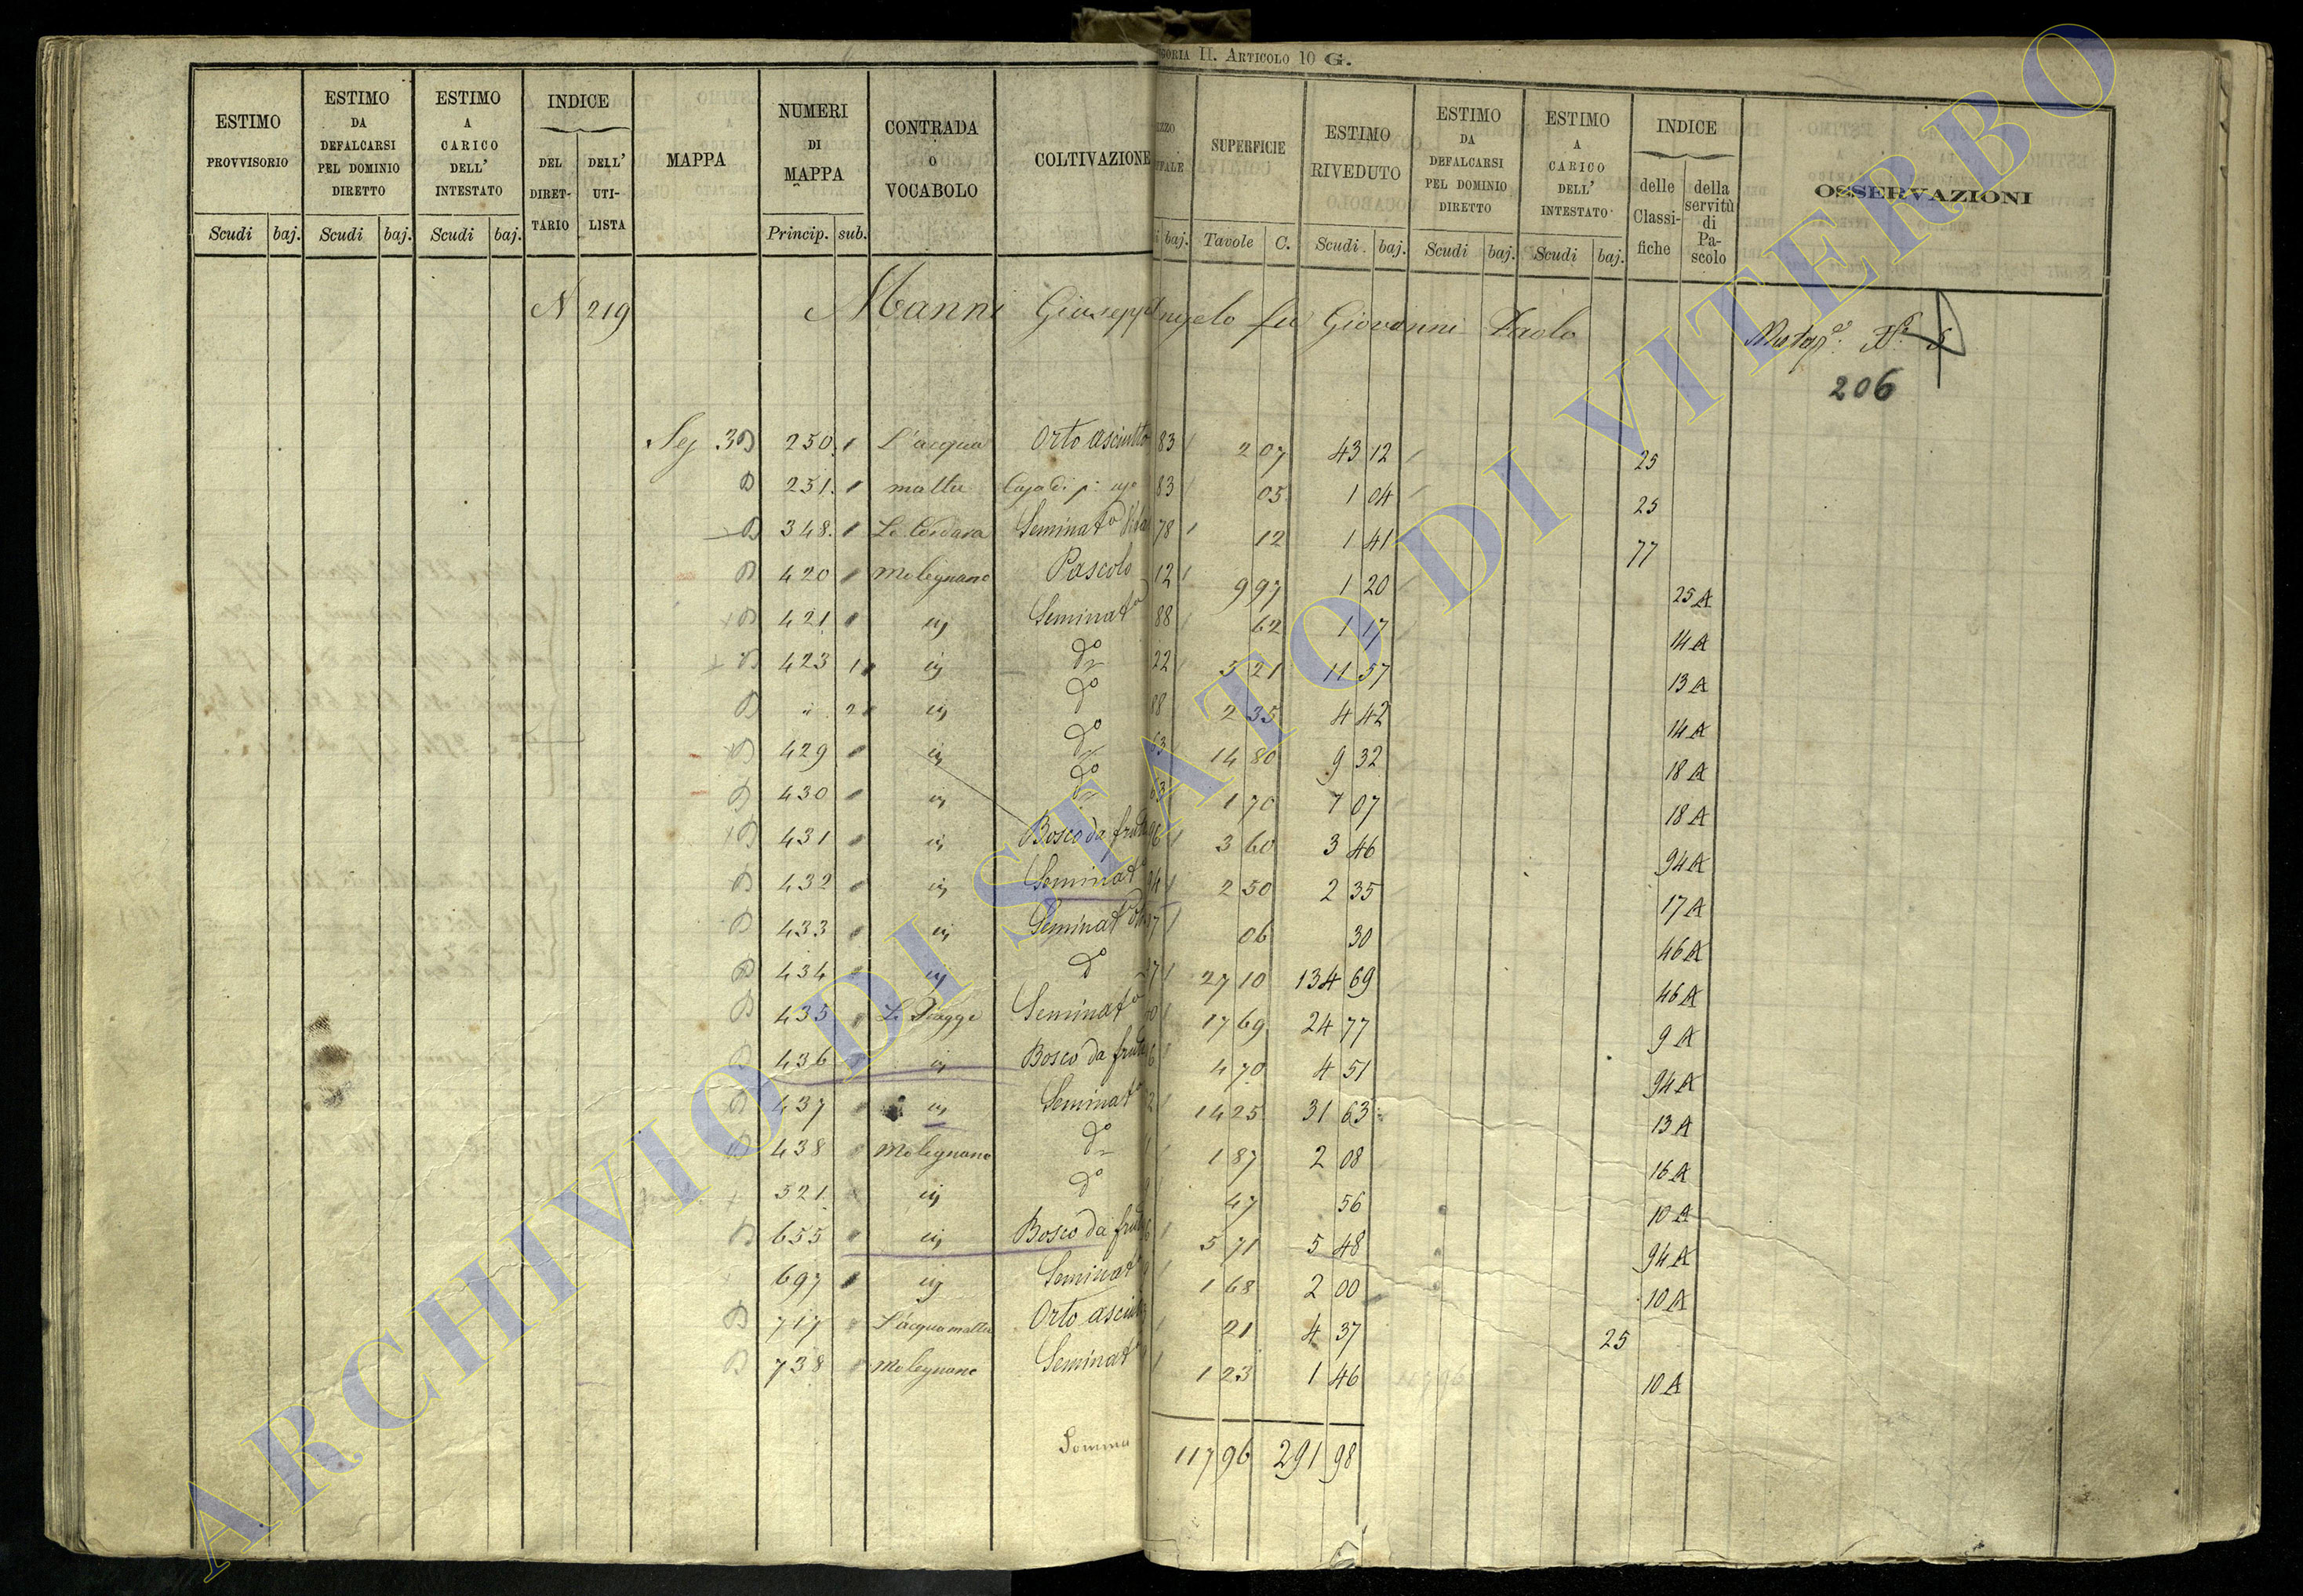 GORIA II. ARTICOLO 10 G.
ESTIMO PROVVISORIO | ESTIMO DA DEFALCARSI PEL DOMINIO DIRETTO | ESTIMO A CARICO DELL' INTESTATO | INDICE | MAPPA | NUMERI DI MAPPA | CONTRADA O VOCABOLO | COLTIVAZIONE | SUPERFICIE | ESTIMO RIVEDUTO | ESTIMO DA DEFALCARSI PEL DOMINIO DIRETTO | ESTIMO A CARICO DELL' INTESTATO | INDICE | OSSERVAZIONI
DEL DIRETTARIO | DELL' UTILISTA | delle Classifiche | della servitù di Pascolo
Scudi | baj. | Scudi | baj. | Scudi | baj. | Princip. | sub. | baj. | Tavole | C. | Scudi | baj. | Scudi | baj. | Scudi | baj.
N 219 Manni Giuseppe Angelo fu Giovanni Paolo
206
250 L'acqua Orto asciutto 83 2 07 43 12 25
251 matta Casa di p. uso 83 05 1 04 25
348 Seminato 78 12 1 41 77
420 Molegnano Pascolo 12 9 97 1 20 25 A
421 Seminato 88 62 1 17 14 A
423 1 do 22 5 21 11 57 13 A
" 2 do 88 2 35 4 42 14 A
429 do 63 14 80 9 32 18 A
430 do 63 1 70 1 07 18 A
431 Bosco da frutto 96 3 60 3 46 94 A
432 Seminato 94 2 50 2 35 17 A
433 Seminato 06 30 46 A
434 do 27 10 134 69 46 A
435 Le Piagge Seminato 17 69 24 77 9 A
436 Bosco da frutto 4 70 4 51 94 A
437 Seminato 14 25 31 63 13 A
438 Molegnano do 1 87 2 08 16 A
521 do 47 56 10 A
655 Bosco da frutto 5 71 5 48 94 A
697 Seminato 1 68 2 00 10 A
717 L'acqua matta Orto asciutto 21 4 37 25
738 Molegnano Seminato 1 23 1 46 10 A
Somma 117 96 291 98
ARCHIVIO DI STATO DI VITERBO